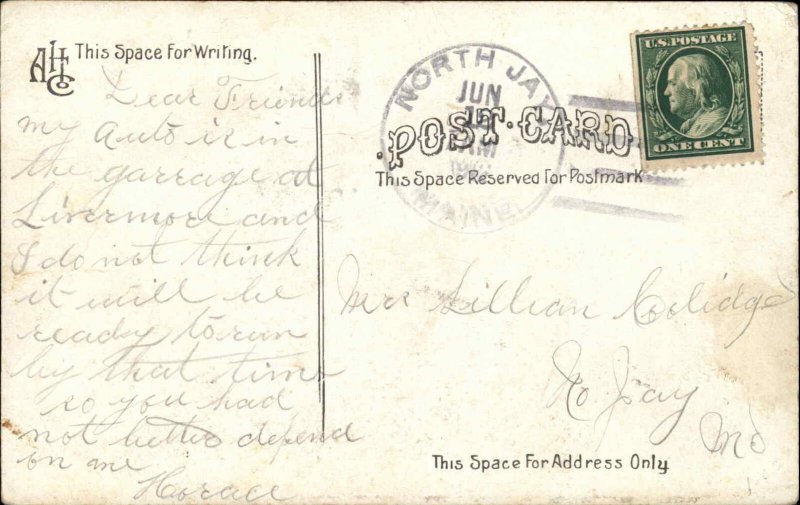 AHTCo
This Space For Writing.
Dear Friend
my auto is in
the garrage at
Livermore and
I do not think
it will be
ready to run
by that time
so you had
not better depend
on me
Horace
NORTH JAY
JUN
AM
MAINE.
POST·CARD
This Space Reserved For Postmark
U.S. POSTAGE
ONE CENT
Mrs Lillian Coolidge
No Jay
Me
This Space For Address Only.